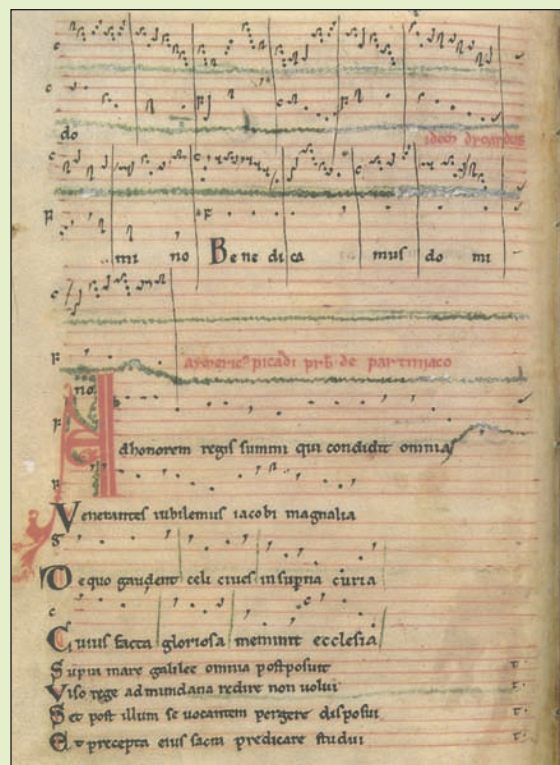 do
idem droardus
mi no Be ne di ca mus do mi
aymericꝰ picadi prb̄ de partiniaco
no
Ad honorem regis summi qui condidit omnia
Venerantes iubilemus iacobi magnalia
De quo gaudent celi ciues in supna curia
Cuius facta gloriosa meminit ecclesia
Supra mare galilee omnia postposuit t·
Viso rege ad mundana redire non uolui t·
Set post illum se uocantem pergere disposui t·
Et precepta eius sacra predicare studui t·